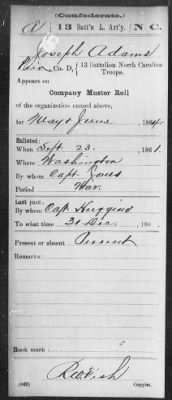 (Confederate.)
A 13 Batt'n L. Art'y. N C.
Joseph Adams
Co. D, 13 Battalion North Carolina Troops.
Appears on
Company Muster Roll
of the organization named above,
for May & June, 1864.
Enlisted:
When Sept. 23, 1861.
Where Washington
By whom Capt. Jones
Period War.
Last paid:
By whom Capt. Huggins
To what time 31 Dec, 186 .
Present or absent Present
Remarks:
Book mark:
(642) Copyist.